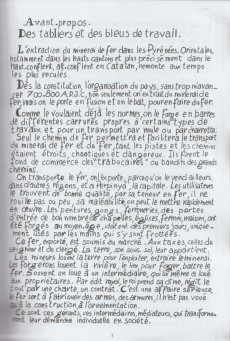 Avant-propos.
Des tabliers et des bleus de travail.
L'extraction du minerai de fer dans les Pyrénées-Orientales,
notamment dans les hauts cantons et plus précisément dans le
haut-conflent, alt-conflent en Catalan, remonte aux temps
les plus reculés.
Dès la constitution, l'organisation du pays, sans trop m'avan-
cer 700.800 A.P.J.C. non seulement on extrait du minerai de
fer, mais on le porte en fusion et on le bat, pour en faire du fer.
Comme le voulaient déjà les normes, on le forge en barres
de différentes carrures propres à certains types de
travaux et pour un transport par mule ou par charrette.
Seul le chemin de fer permettra et facilitera le transport
du minerai de fer et du fer, tant les pistes et les chemins
étaient étroits, chaotiques et dangereux. Ils firent le
fond de commerce des "trabucaires" ou bandits des grands
chemins.
On transporte le fer, on l'exporte, parce qu'on le vend ailleurs,
dans d'autres régions, et a
la capitale. Les utilisateurs
le trouvent de bonne qualité, par sa teneur en fer, il ne
rouille pas ou peu, sa malléabilité, on peut le mettre rapidement
en œuvre. Les pentures, gonds, ferronneries, des portes
d'entrée de bon nombre de chapelles, églises, fermes, maisons, ont
été forgés au moyen-âge, datent des premiers jours, unique-
ment usés par les mains qui s'y sont frottées.
Ce fer, exporté, est soumis au marché. Aux taxes, celles du
seigneur et du clergé. La terre, son sous-sol, leur appartient.
Les mineurs louent la terre pour l'exploiter, extraire le minerai.
Les forgerons louent la rivière, le lieu pour forger, battre le
fer. Souvent on loue à un intermédiaire, qui lui même a loué
aux propriétaires. Par
tout par une charte, un contrat. C'est une affaire sérieuse,
le fer sert à fabriquer des armes, des armures, il n'est pas voué
à la construction, à l'ornementation.
Ce sont ces gérants, ces intermédiaires, médiateurs, qui transforme-
ront leur démarche individuelle en société.